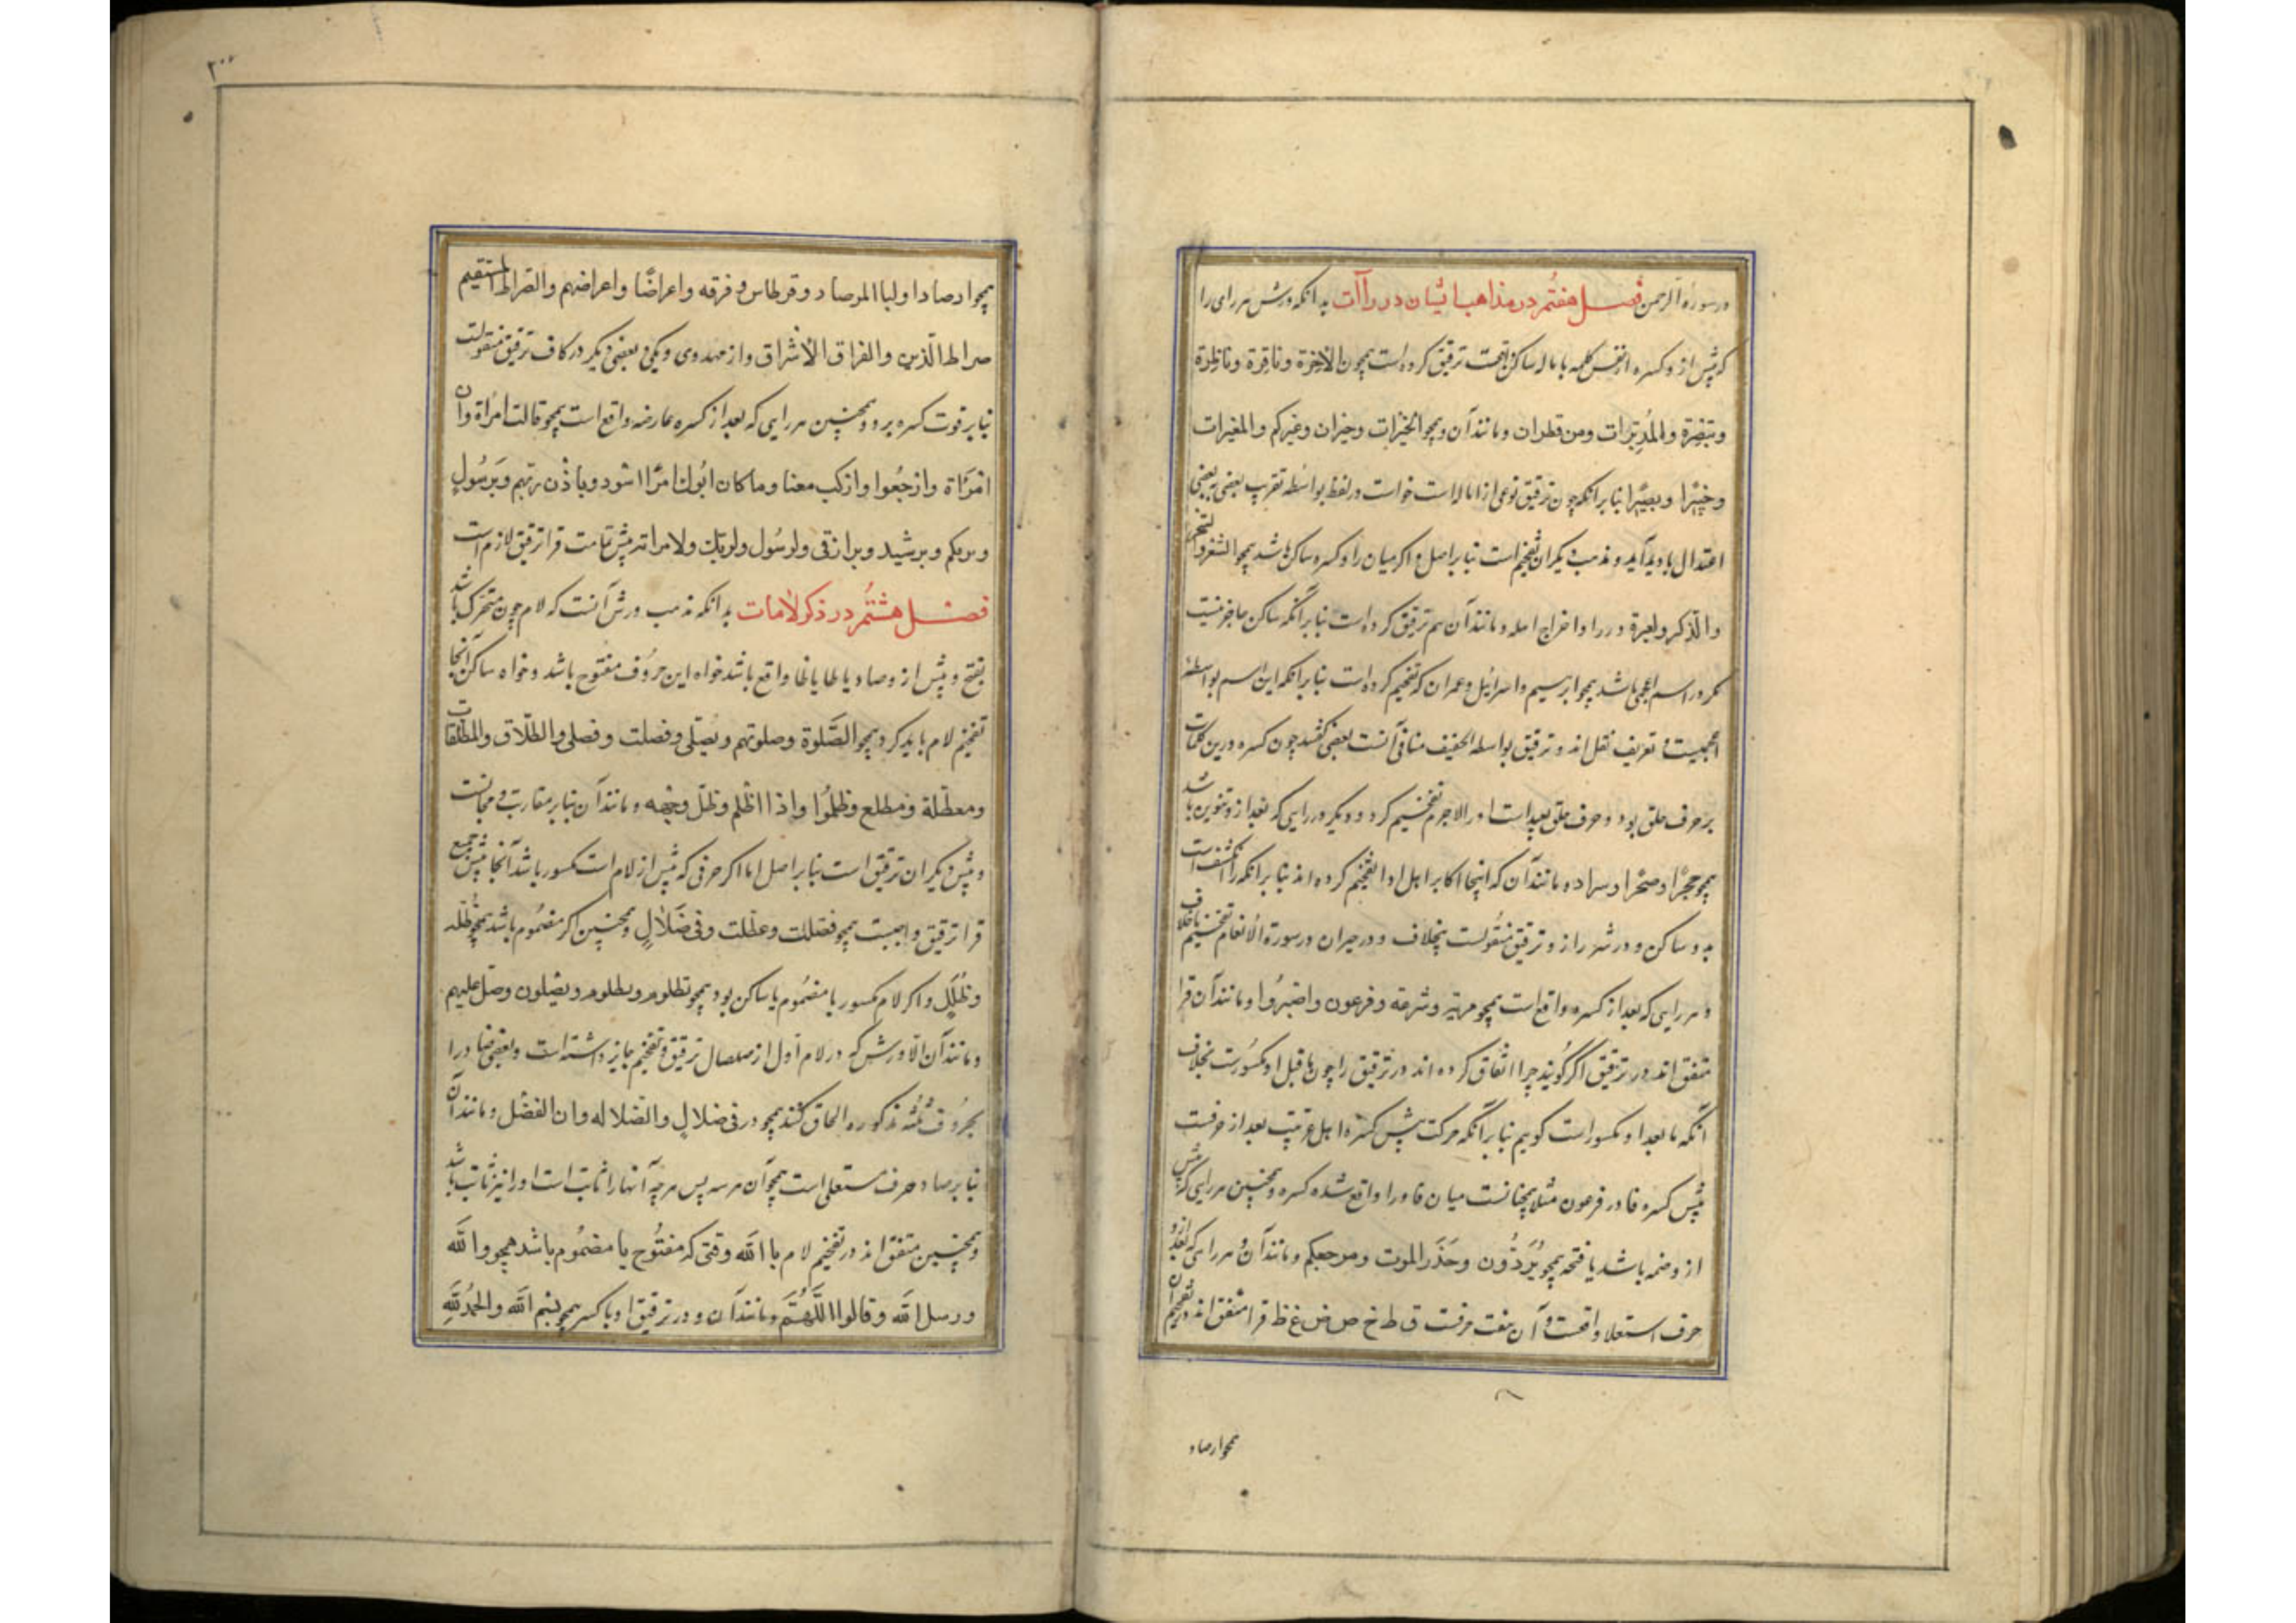 در سورهٔ الرحمن فصل هفتم در مذاهب ایشان در راآت بدانکه ورش هر رایی را
که پیش از و کسره از نفس کلمه یا یا ساکن است ترقیق کرده است همچون الآخِرَة و فاقِرَة و ناظِرَة
و تبصِرَة والمُدبِّرَات و من قطران و مانند آن و همچو الخَیْرات و حیران و غیرکم والمغیرات
و خَبیْرًا و بصِیْرًا بنابر آنکه چون ترقیق نوعی از اماله است خواست در لفظ بواسطه تقریب بعضی به بعضی
اعتدال بادید آید و مذهب دیگران تفخیم است بنابر اصل و اگر میان را و کسره ساکن باشد همچو الشعر
والذکر و لعبرة و وزرا و اخراج اهله و مانند آن هم ترقیق کرده است بنابر آنکه ساکن حاجز نیست
مگر در اسم اعجمی باشد همچو ابراهیم و اسرائیل و عمران که تفخیم کرده است بنابر آنکه این اسم بواسطهٔ
عجمیت و تعریف ثقل‌اند و ترقیق بواسطه الخفیف منافی آنست بعضی گفتند چون کسره درین کلمات
بر حرف حلق بود و حرف حلق بعید است از را لاجرم تفخیم کرد و دیگر در رایی که بعد از و تنوین باشد
همچو حِجرًا و صهرًا و سرا و مانند آن که اینجا اکابر اهل ادا تفخیم کرده اند بنابر آنکه را
به دو ساکن و در شرر از و ترقیق منقولست بخلاف و در حیران در سورة الانعام تفخیم بخلاف
و هر رایی که بعد از کسره واقع است همچو مریة و شرعة و فرعون و اصْبِرُوا و مانند آن قرا
متفق‌اند در ترقیق اگر گویند چرا اتفاق کرده اند در ترقیق را چون ماقبل او مکسورست بخلاف
آنکه ما بعد او مکسور است گوییم بنابر آنکه حرکت پیش اهل عربیت بعد از حرفست
پس کسره فا در فرعون مثلا همچنانست میان فا و را واقع شده کسره و همچنین هر رایی که پیش
از و ضمه باشد یا فتحه همچو یُرَدُّون و حَذَر الموت و مرجعکم و مانند آن و هر رایی که بعد از و
حرف استعلا واقعست و آن هفت حرفست ق ط خ ص ض غ ظ قرا متفق‌اند در تفخیم آن
همچو ارصاد
۲۰۰
همچو ارصادا و لباالمرصاد و قرطاس و فرقه و اعراضًا و اعراضهم والصراط المستقیم
صراط الّذین والفراق الاشراق و از مهدوی و مکی و بعضی دیگر در کاف ترقیق منقولست
بنابر قوت کسره برو و همچنین هر رایی که بعد از کسره عارضه واقع است همچو قالت امْرَاة و ان
امْرَاة و ارْجِعُوا و ارکب معنا و ما کان ابُوك امْرَا سوء و باذْن ربّهم و بِرَسُولٍ
و بربکم و برشید و برازقی و لرسُول و لربك و لامراته پیش تمامت قرا ترقیق لازم است
فصل هشتُم در ذکر لامات بدانکه مذهب ورش آنست که لام چون متحرک باشد
بفتح و پیش از و صاد یا طا یا ظا واقع باشد خواه این حروف مفتوح باشد و خواه ساکن آنجا
تفخیم لام باید کرد همچو الصَّلوة و صلوتهم و یُصلی و فصلت و فصلی والطّلاق والمطلقات
و معطّلة و مطلع و ظلَمُوا و اذا اظْلم و ظلّ وجْهه و مانند آن بنابر مقاربت و مجانست
و پیش دیگران ترقیق است بنابر اصل اما اگر حرفی که پیش از لام است مکسور باشد آنجا پیش جمیع
قرا ترقیق واجبست همچو فصّلت و عطّلت و فی ضَلالٍ و همچنین اگر مضمُوم باشد همچو ظُلّة
و ظُلَلٍ و اگر لام مکسور یا مضمُوم یا ساکن بود همچو تظلوم و یطلوم و یصَلون و صل علیهم
و مانند آن الا ورش که در لام اول از صلصال ترقیق و تفخیم جایز داشته است و بعضی ضاد را
بحروف ثلثه مذکوره الحاق کنند همچو در فی ضلالٍ والضلاله و ان الفضل و مانند آن
بنابر ضاد حرف مستعلی است همچو آن هر سه پس هرچه آنها را ثابت است او را نیز ثابت باشد
و همچنین متفق‌اند در تفخیم لام با الله وقتی که مفتُوح یا مضمُوم باشد همچو والله
و رسل الله و قالوا اللَّهُمَّ و مانند آن و در ترقیق او با کسر همچو بسم الله والحمدُ للهِ